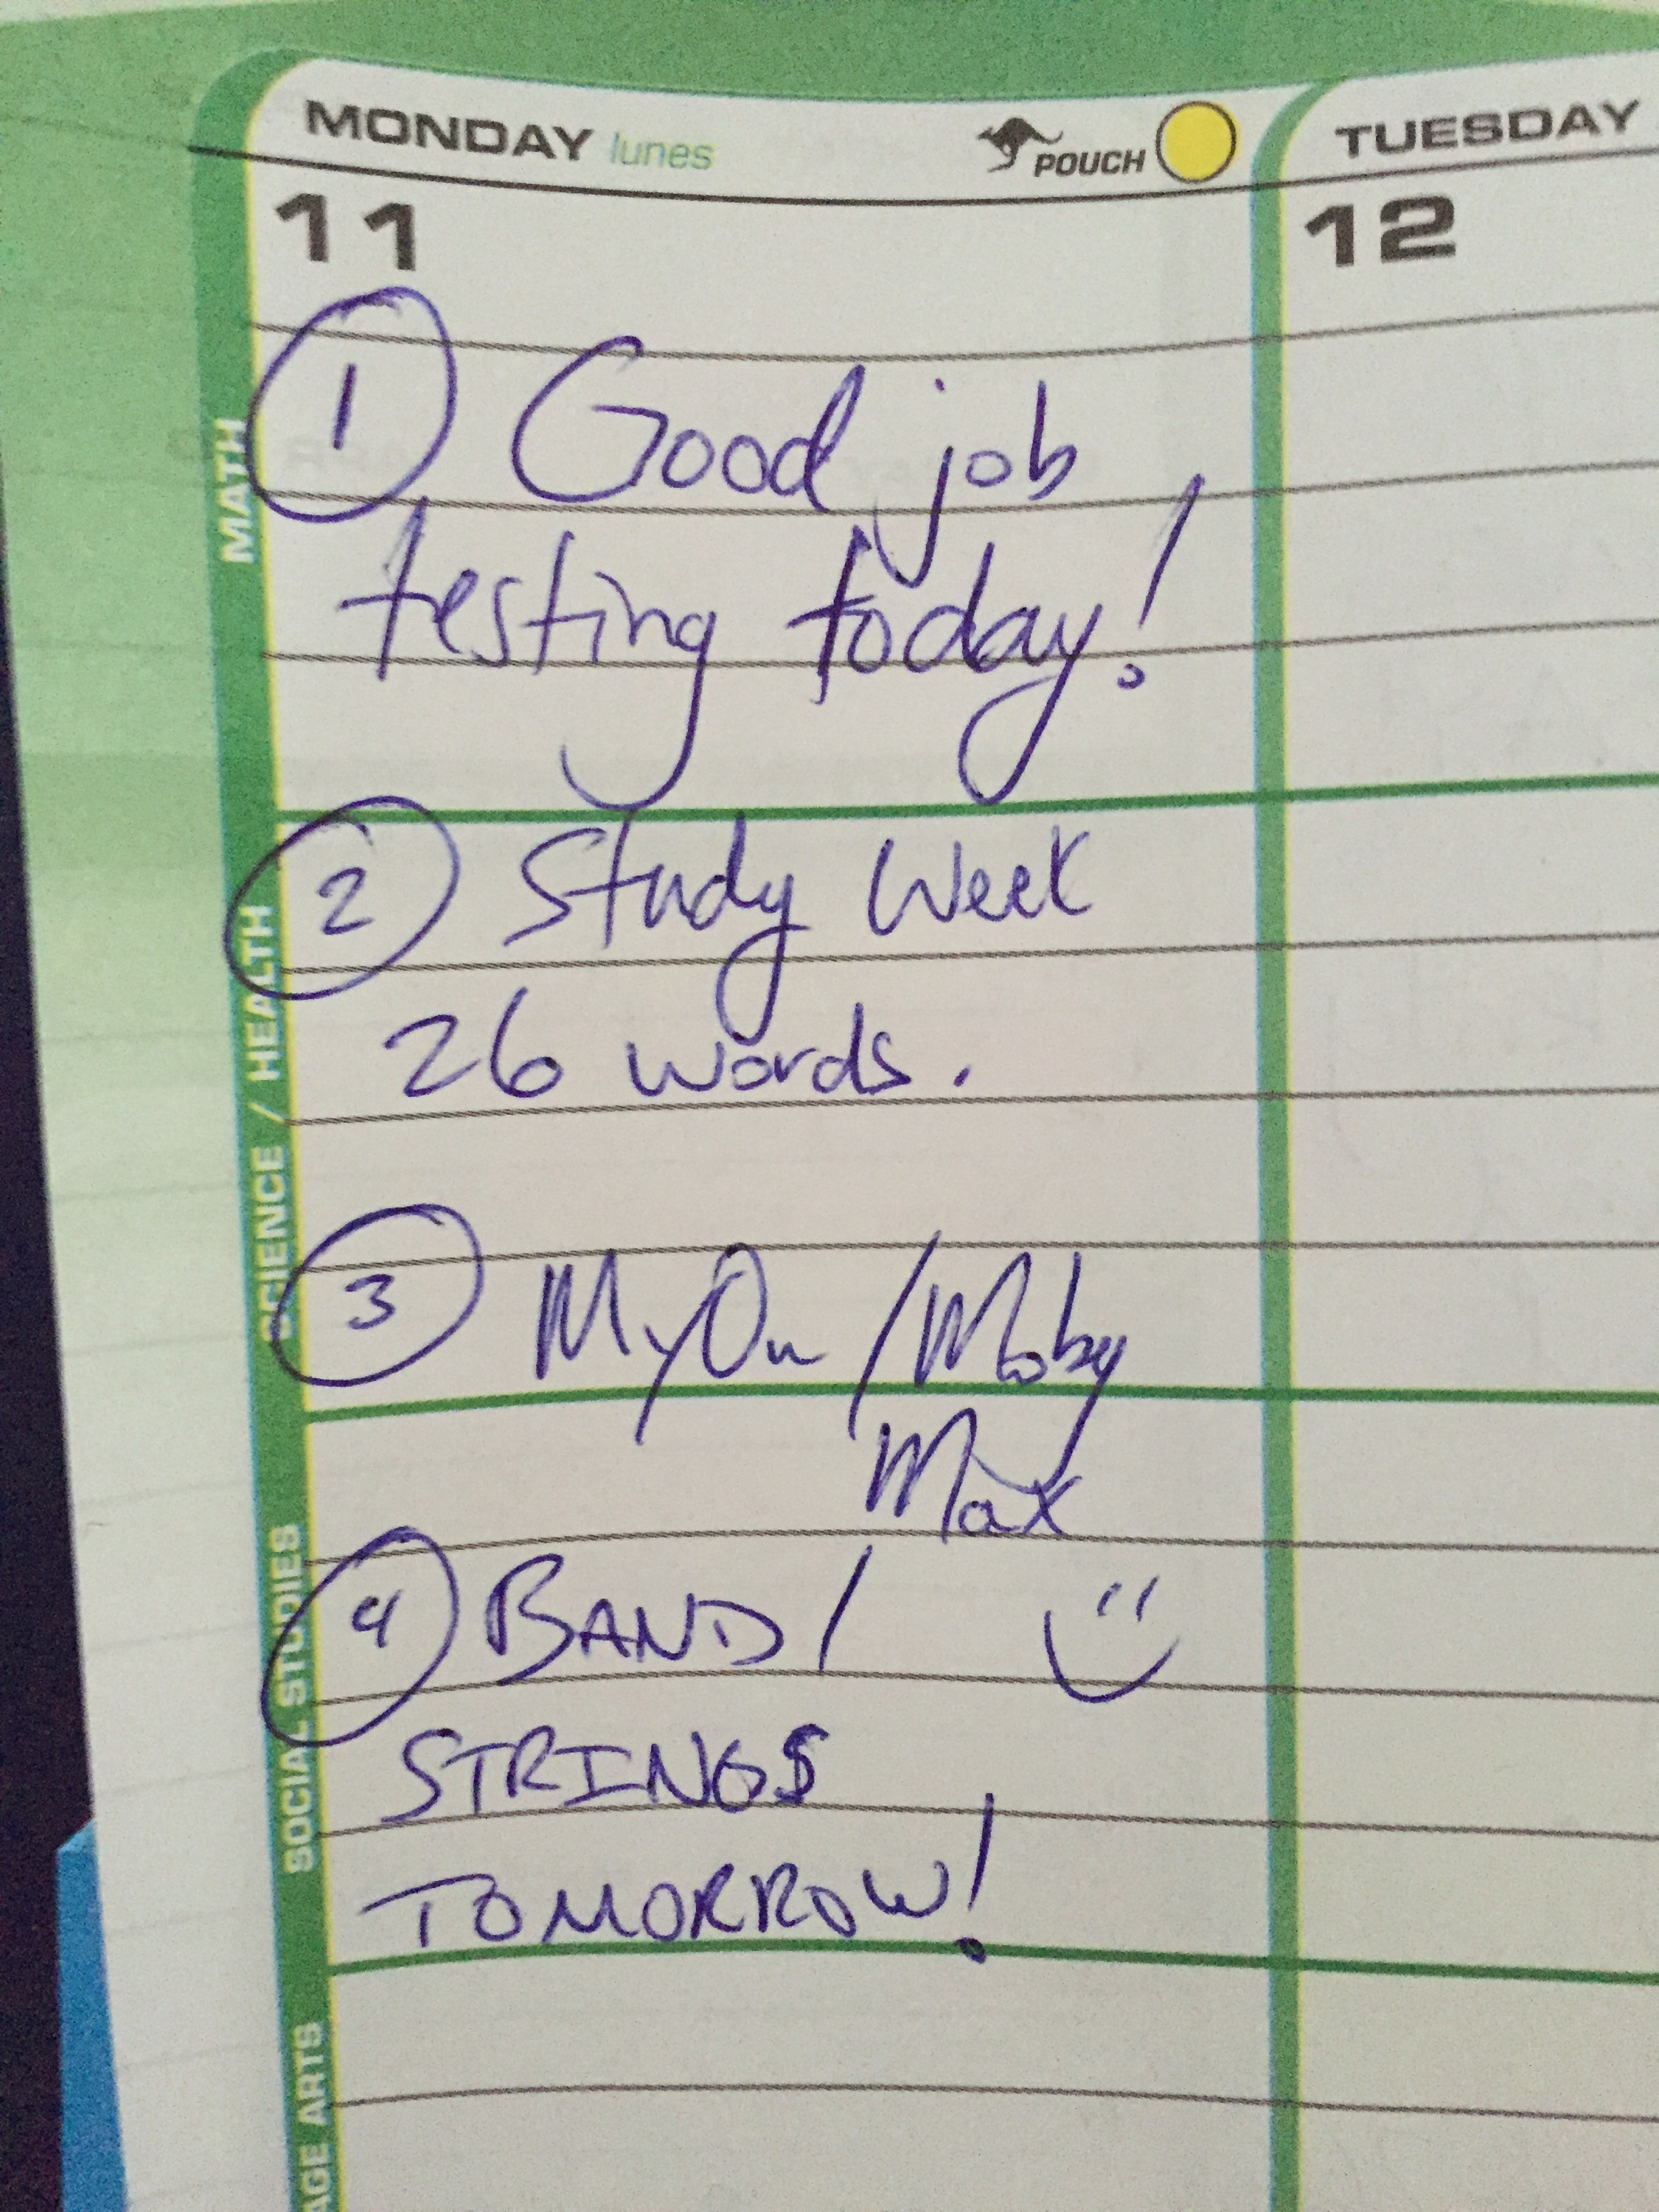 MONDAY lunes POUCH TUESDAY
11 12
MATH
1 Good job
testing today!
SCIENCE / HEALTH
2 Study Week
26 words.
3 MyOn / Moby
Max
SOCIAL STUDIES
4 BAND /
STRINGS
TOMORROW!
AGE ARTS